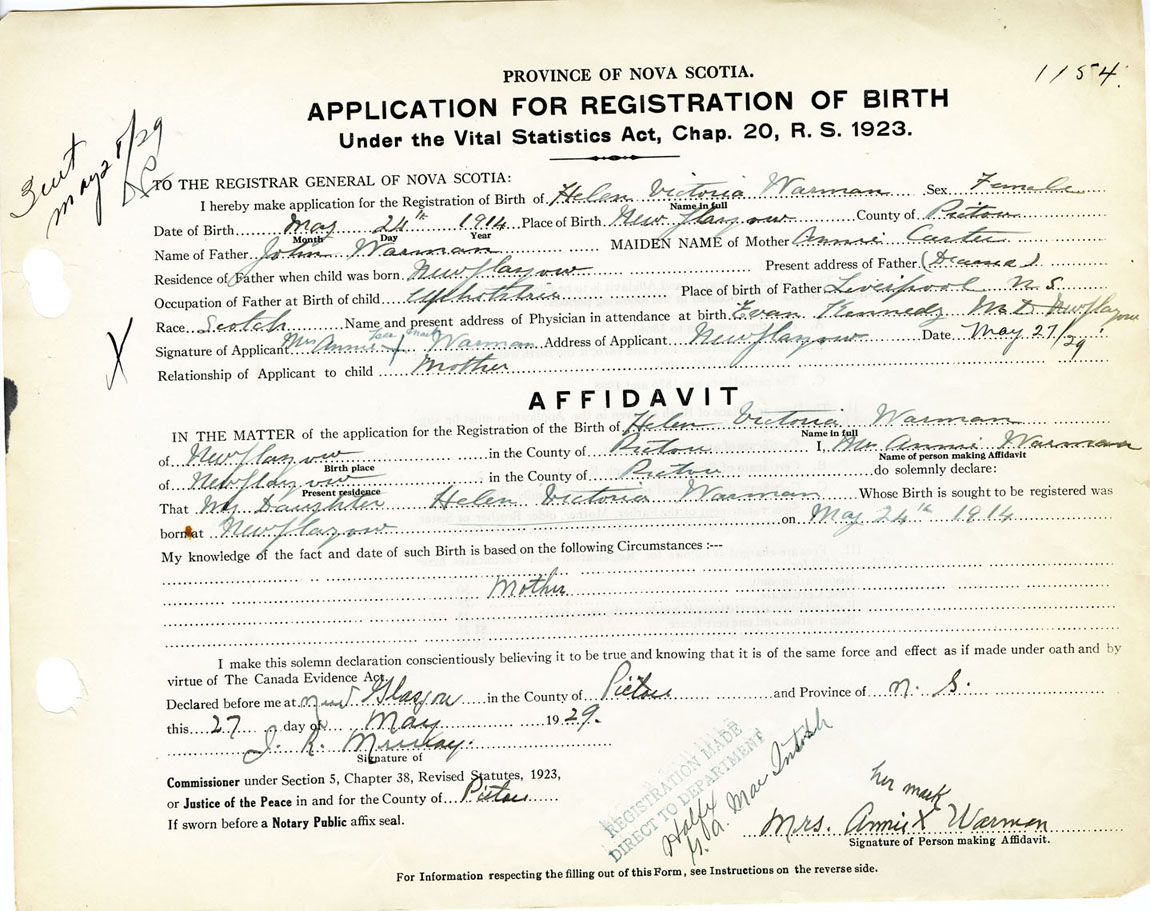 PROVINCE OF NOVA SCOTIA.
1154.
APPLICATION FOR REGISTRATION OF BIRTH
Under the Vital Statistics Act, Chap. 20, R. S. 1923.
May 28/29
TO THE REGISTRAR GENERAL OF NOVA SCOTIA:
I hereby make application for the Registration of Birth of Helen Victoria Warman Sex Female
Name in full
Date of Birth May 24th 1914 Place of Birth New Glasgow County of Pictou
Month Day Year
Name of Father John Warman MAIDEN NAME of Mother Annie Carter
Residence of Father when child was born New Glasgow Present address of Father (Deceased)
Occupation of Father at Birth of child Upholsterer Place of birth of Father Liverpool N. S.
Race Scotch Name and present address of Physician in attendance at birth Evan Kennedy M D New Glasgow
her mark
X
Signature of Applicant Mrs Annie X Warman Address of Applicant New Glasgow Date May 27/29
Relationship of Applicant to child Mother
AFFIDAVIT
IN THE MATTER of the application for the Registration of the Birth of Helen Victoria Warman
Name in full
of New Glasgow in the County of Pictou I, Mrs. Annie Warman
Birth place Name of person making Affidavit
of New Glasgow in the County of Pictou do solemnly declare:
Present residence
That My Daughter Helen Victoria Warman Whose Birth is sought to be registered was
born at New Glasgow on May 24th 1914
My knowledge of the fact and date of such Birth is based on the following Circumstances :---
Mother
I make this solemn declaration conscientiously believing it to be true and knowing that it is of the same force and effect as if made under oath and by
virtue of The Canada Evidence Act.
Declared before me at New Glasgow in the County of Pictou and Province of N. S.
this 27 day of May 1929.
J. R. Murray.
Signature of
Commissioner under Section 5, Chapter 38, Revised Statutes, 1923,
or Justice of the Peace in and for the County of Pictou
If sworn before a Notary Public affix seal.
REGISTRATION MADE
DIRECT TO DEPARTMENT
Halfx
G. A. MacIntosh
her mark
Mrs. Annie X Warman
Signature of Person making Affidavit.
For Information respecting the filling out of this Form, see Instructions on the reverse side.